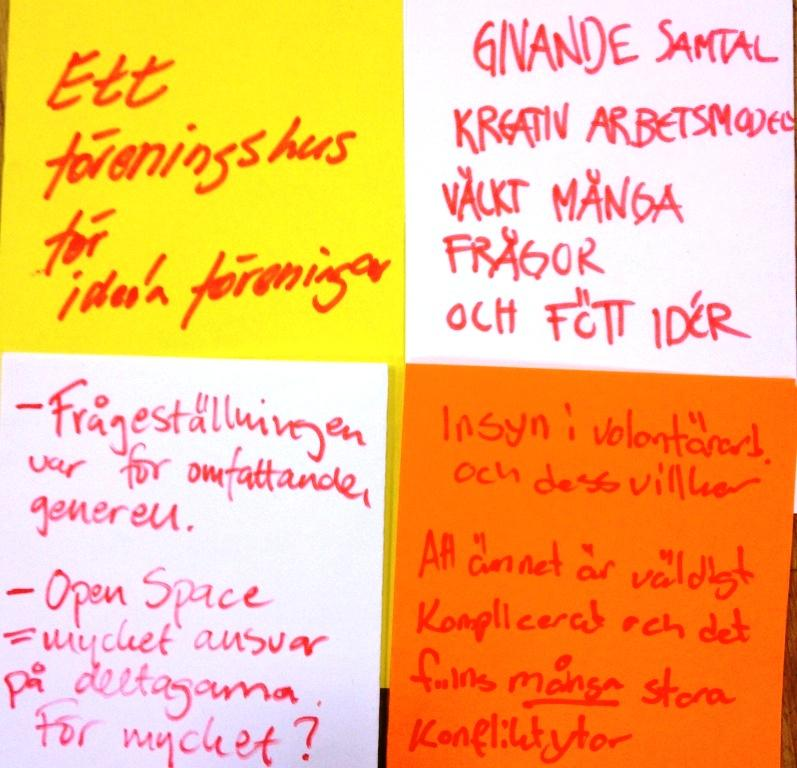 Ett
föreningshus
för
ideela föreningar
GIVANDE SAMTAL
KREATIV ARBETSMODELL
VÄCKT MÅNGA
FRÅGOR
OCH FÖTT IDÉR
- Frågeställningen
var för omfattande,
generell.
- Open Space
= mycket ansvar
på deltagarna.
För mycket?
Insyn i volontärarb.
och dess villkor
Att ämnet är väldigt
Komplicerat och det
finns många stora
Konfliktytor